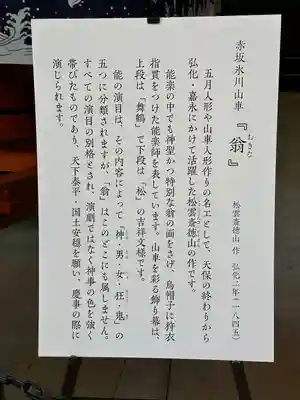 赤坂氷川山車
『翁』
おきな
松雲斎徳山 作 弘化二年(一八四五)
五月人形や山車人形作りの名工として、天保の終わりから
弘化・嘉永にかけて活躍した松雲斎徳山の作です。
能楽の中でも神聖かつ特別な翁の面をさげ、烏帽子に狩衣
指貫をつけた能楽師を表しています。山車を彩る飾り幕は、
上段は「舞鶴」で下段は「松」の吉祥文様です。
能の演目は、その内容によって『神・男・女・狂・鬼』の
五つに分類されますが、「翁」はこのどこにも属しません。
すべての演目の別格とされ、演劇ではなく神事の色を強く
帯びたものであり、天下泰平・国土安穏を願い、慶事の際に
演じられます。